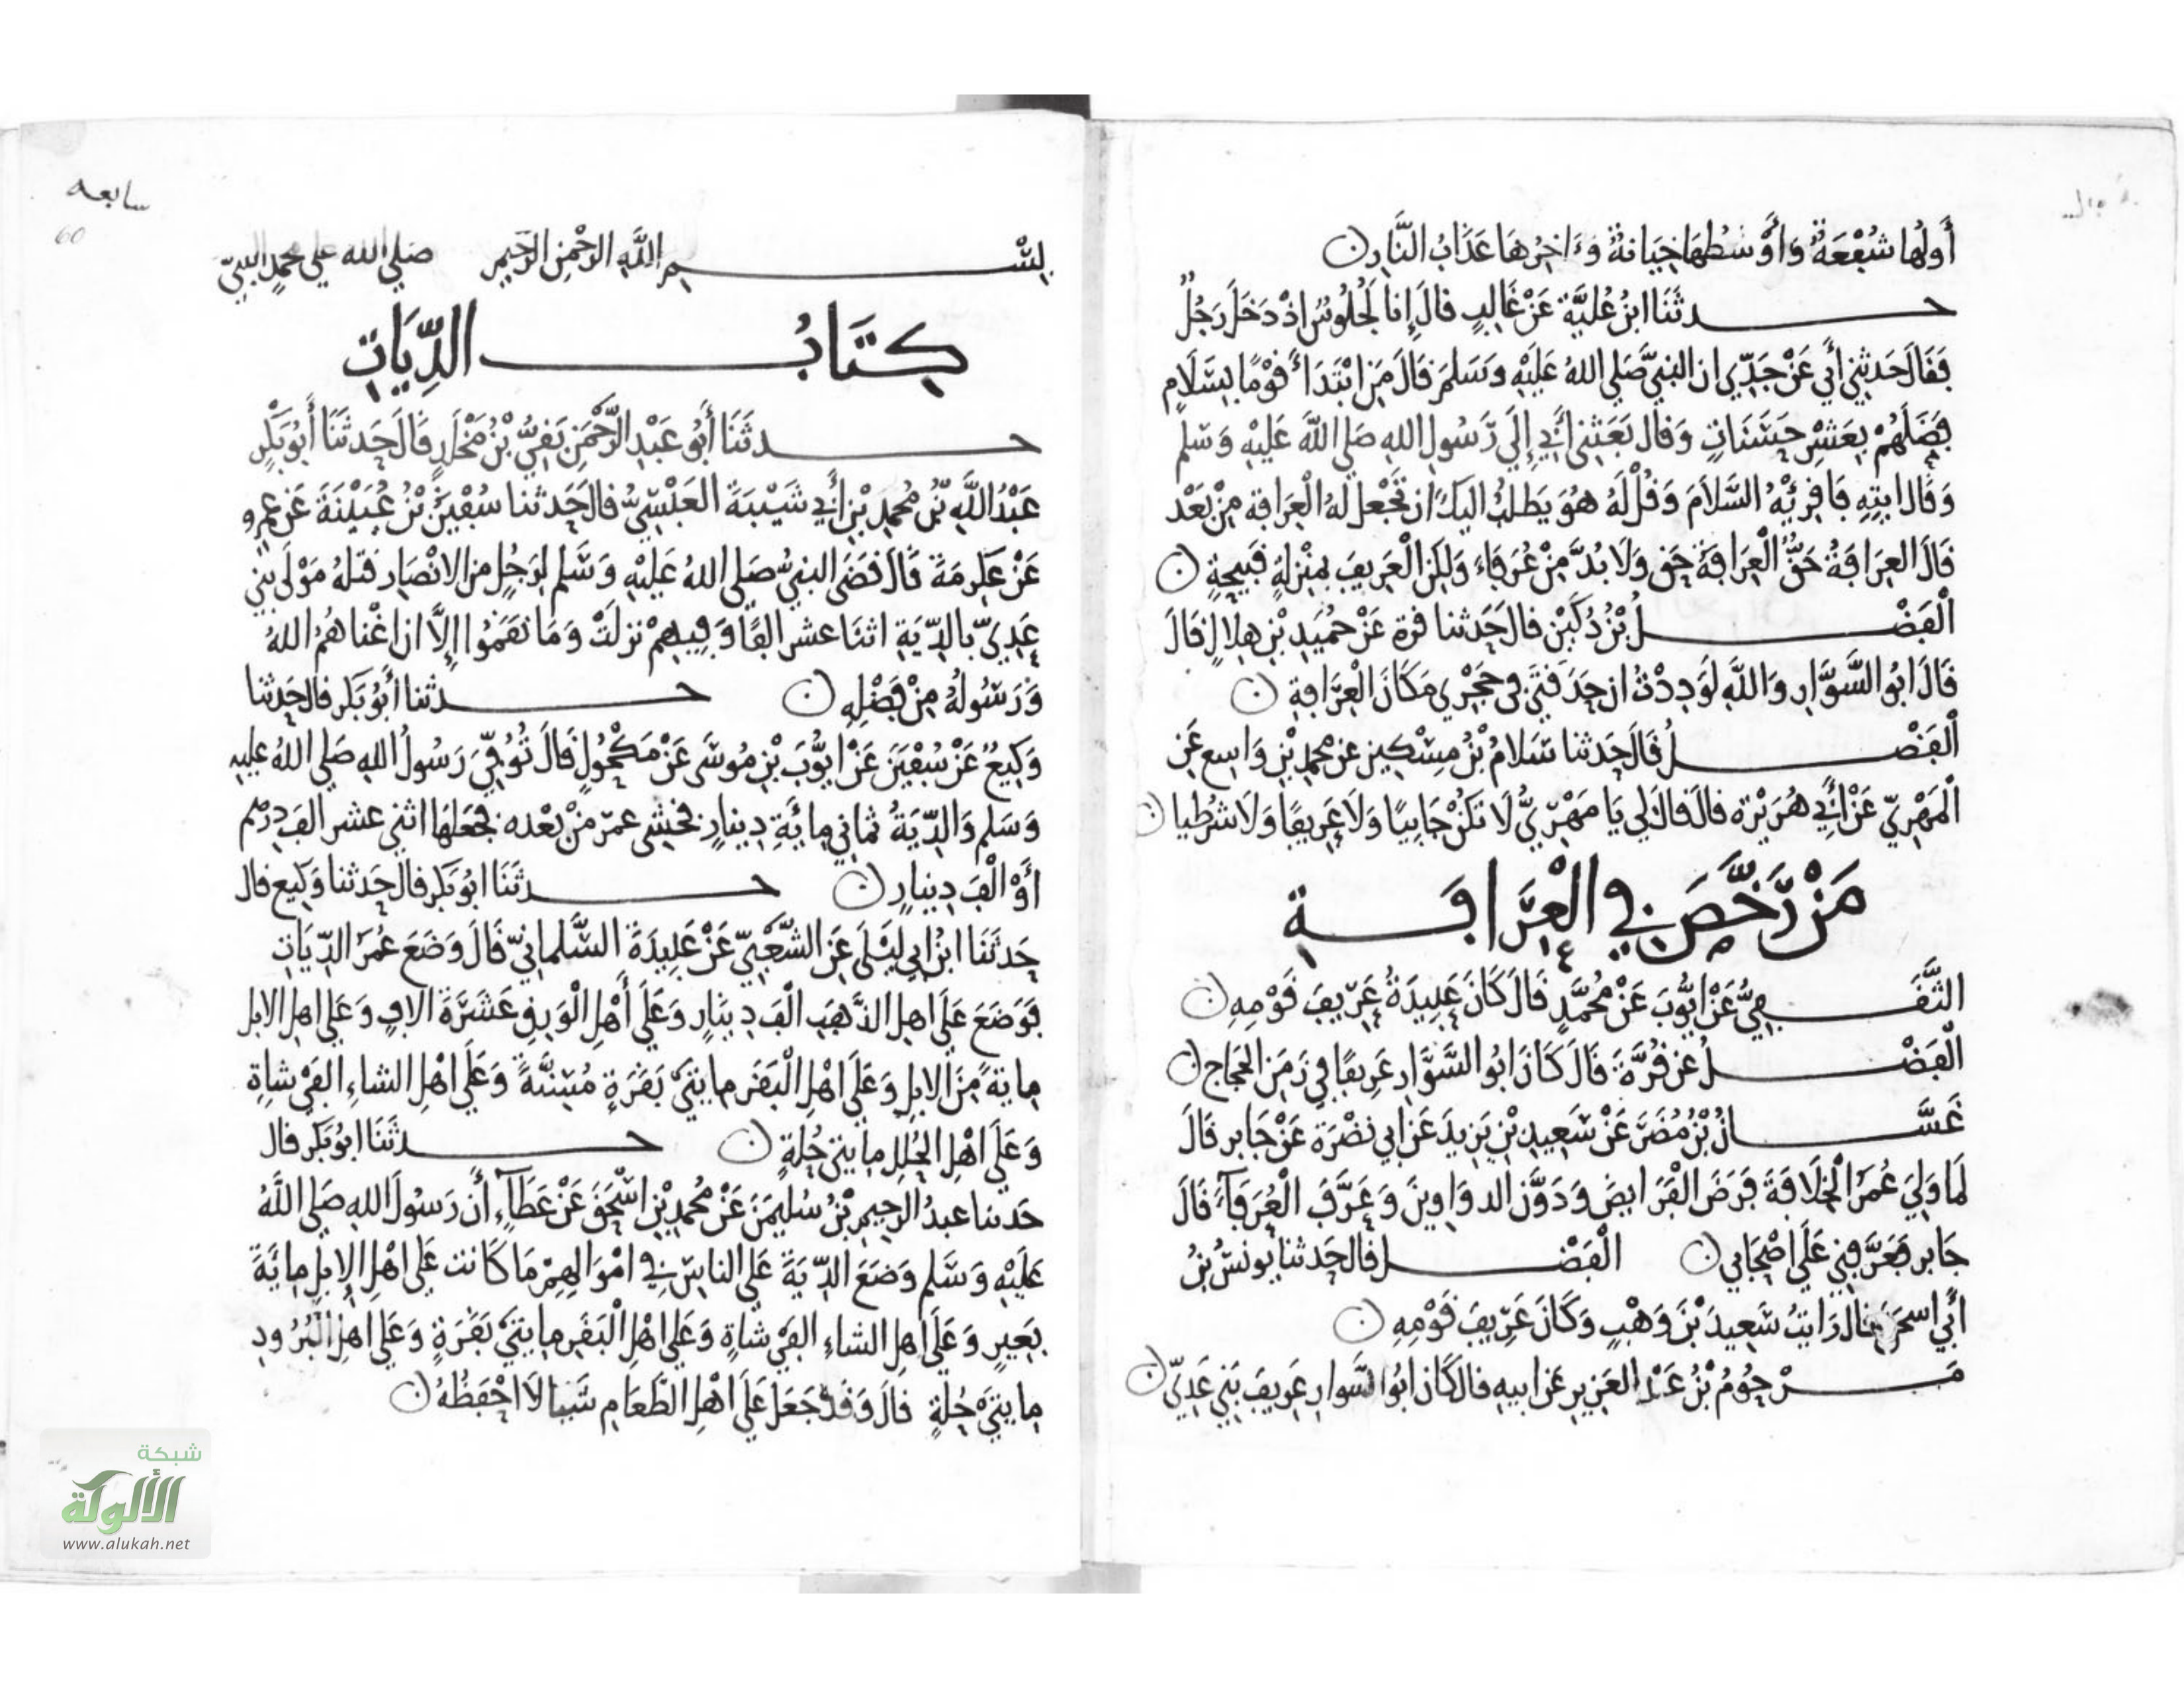 أَولُها شُفْعَةٌ وَأَوْسَطُهَا خِيَانةٌ وَءَاخِرُهَا عَذَابُ النَّارِ
حدثَنَا ابنُ عُليَّة عَنْ غَالِبٍ قالَ إِنا لَجُلُوسٌ اذْ دَخَلَ رَجُلٌ
فَقَالَ حَدثَنِي أَبي عَنْ جَدِّي ان النبيَّ صَلى اللهُ عَلَيْهِ وَسَلمَ قَالَ مَنِ ابْتَدَأَ قوْمًا بِسَلَامٍ
فَضَلَهُمْ بِعَشْرِ حَسَنَاتٍ وَقال بَعَثني أَبي إِلَى رَسُولِ اللهِ صَلى اللهُ عَلَيْهِ وَسَلم
وَقَالَ ايتِهِ فَاقرِئْهُ السَّلَامَ وَقُلْ لَهُ هُوَ يَطلبُ اليكَ ان تَجْعل لهُ الْعِرَافة مِنْ بَعْد
قَالَ العِرَافَةُ حَقٌّ الْعِرَافَةُ حَق وَلَا بُدَّ مِنْ عُرَفَاءَ وَلكِن الْعَرِيفَ بمنْزِلةٍ قَبِيحَةٍ
الْفَضْلُ بْنُ دُكَيْن قال حَدثنا قرة عَنْ حُمَيدِ بْنِ هِلَالٍ قالَ
قَالَ ابُو السَّوَّارِ وَاللَّهِ لَوَدِدْتُ ان حَدَقَتَيَّ في حَجْري مَكَانَ الْعِرَافةِ
الْفَضْلُ قَالَ حَدثنا سَلامُ بْنُ مِسْكِين عن محمدِ بْنِ وَاسِع عَن
الْمَهْرِيِّ عَنْ أَبي هُرَيْرة قالَ قالَ لي يَا مَهْرِيُّ لَا تَكنْ جَابِيًا وَلَا عَرِيفًا وَلَا شُرْطيا
مَنْ رَخَّصَ فِي الْعِرَافَةِ
الثَّقَفِيُّ عَنْ ايُّوبَ عَنْ مُحَمَّدٍ قَالَ كَانَ عَبِيدَةُ عَرِيفَ قَوْمِهِ
الْفَضْلُ عن قُرَّةَ قَالَ كَانَ ابُو السَّوَّارِ عَرِيفًا في زَمَنِ الحَجاج
غَسَّانُ بْنُ مُضَرَ عَنْ سَعِيدِ بْنِ يَزِيدَ عَن ابي نضْرَة عَنْ جَابر قالَ
لمَا وَلِيَ عُمَرُ الْخِلَافَةَ فَرَضَ الْفَرَايِضَ وَدَوَّنَ الدوَاوِينَ وَعَرَّفَ الْعُرَفَآءَ قَالَ
جَابر فَعَرَّفنِي عَلَى اصْحَابي الْفَضْل قال حَدثنا يُونسُ بْنُ
أَبي اسحق قال رَايتُ سَعِيدَ بْنَ وَهْبٍ وَكَانَ عَرِيفَ قَوْمِهِ
مَرْحُومُ بْنُ عَبْدِ العَزيزِ عَن ابيهِ قال كَانَ ابُو السَّوارِ عَرِيفَ بَنِي عَدِيّ
سابعه
60
بِسْمِ اللَّهِ الرَّحْمٰنِ الرَّحِيمِ صَلى الله على محمدٍ النبيّ
كِتَابُ الدِّيَاتِ
حدثَنَا أَبُو عَبْدِ الرَّحْمٰنِ بَقِيُّ بْنُ مَخْلَدٍ قَالَ حَدثَنَا أَبُو بَكْرٍ
عَبْدُ اللَّهِ بْنُ محمدِ بْنِ أَبي شَيْبَةَ العَبْسِيُّ قالَ حَدثنا سُفْيَنُ بْنُ عُيَيْنَةَ عَن عمرٍو
عَنْ عِكرِمَةَ قَالَ قَضَى النبيُّ صَلى اللهُ عَلَيْهِ وَسَلم لرَجُلٍ من الانْصَارِ قتلهُ مَوْلَى بني
عَدِيّ بالدِّيَةِ اثنَا عشر الفًا وَفِيهِمْ نزلَتْ وَمَا نقَمُوا إِلَّا ان اغْناهمُ اللهُ
وَرَسُولُهُ مِنْ فَضْلِهِ حدثنا أَبُو بَكر قال حَدثنا
وَكِيعٌ عَنْ سُفْيَنَ عَنْ ايُّوبَ بْنِ مُوسَى عَنْ مَكْحُولٍ قَالَ تُوُفّيَ رَسُولُ اللهِ صَلى اللهُ عليهِ
وَسَلم وَالدِّيَةُ ثمانِي مِائَةِ دِينارٍ فخَشِى عمرُ منْ بَعْده فجَعَلهَا اثني عشر الفَ دِرْهم
أَوْ الْفَ دِينارٍ حدثَنَا ابُو بَكر قال حَدثنا وَكِيع قال
حَدثَنَا ابْنُ ابي ليْلَى عَنِ الشَّعْبِيِّ عَنْ عَبِيدَةَ السَّلمانِيّ قَالَ وَضَعَ عُمَرُ الدِّيَاتِ
فوَضَعَ عَلَى اهلِ الذَّهَبِ الْفَ دِينَارٍ وَعَلَى أَهْلِ الْوَرِقِ عَشَرَةَ الافٍ وَعَلى اهلِ الابل
مايَةً مِنَ الابلِ وَعَلَى اهْلِ الْبَقَرِ مايتَيْ بَقَرَةٍ مُسِنَّةً وَعَلَى اهْلِ الشاءِ الفَيْ شاةٍ
وَعَلَى اهْلِ الحُلَلِ مايتي حُلةٍ حدثَنَا ابُو بَكر قال
حَدثنا عبدُ الرحِيمِ بْنُ سُليمَنَ عَنْ مُحمدِ بْنِ اسْحَقَ عَنْ عَطَآءٍ أَن رَسُولَ اللهِ صَلى اللَّهُ
عَلَيْهِ وَسَلم وَضَعَ الدِّيَةَ عَلى الناسِ فِي امْوَالِهِمْ مَا كَانت عَلى اهْلِ الإبلِ مائَةَ
بَعِيرٍ وَعَلَى اهلِ الشاءِ الفَيْ شاةٍ وَعَلى اهْلِ الْبَقَرِ مايتَيْ بَقَرَةٍ وَعَلى اهلِ الْبُرُودِ
مايتَيْ حُلةٍ قالَ وَقدْ جَعَلَ عَلَى اهْلِ الطَّعَامِ شَيْئا لَا احْفَظُهُ
شبكة
الألوكة
www.alukah.net